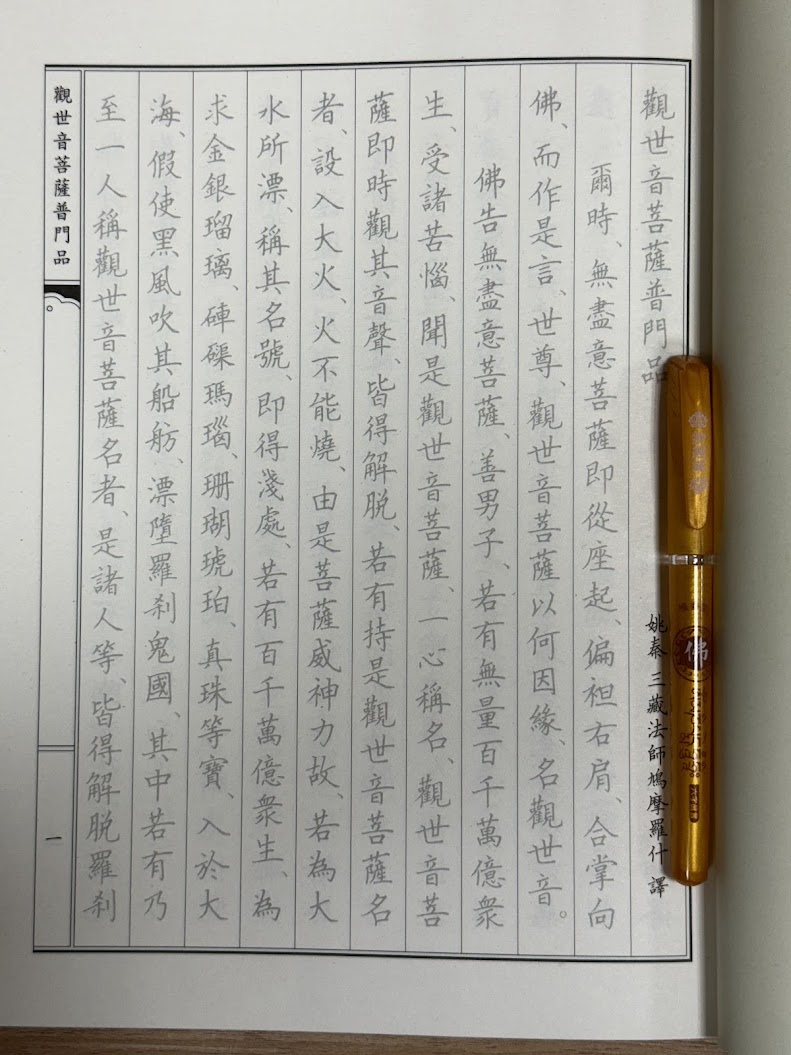 觀世音菩薩普門品
姚秦 三藏法師鳩摩羅什 譯
爾時、無盡意菩薩即從座起、偏袒右肩、合掌向
佛、而作是言、世尊、觀世音菩薩以何因緣、名觀世音。
佛告無盡意菩薩、善男子、若有無量百千萬億衆
生、受諸苦惱、聞是觀世音菩薩、一心稱名、觀世音菩
薩即時觀其音聲、皆得解脱、若有持是觀世音菩薩名
者、設入大火、火不能燒、由是菩薩威神力故、若為大
水所漂、稱其名號、即得淺處、若有百千萬億衆生、為
求金銀瑠璃、硨磲瑪瑙、珊瑚琥珀、真珠等寶、入於大
海、假使黑風吹其船舫、漂墮羅刹鬼國、其中若有乃
至一人稱觀世音菩薩名者、是諸人等、皆得解脱羅刹
觀世音菩薩普門品
一
佛